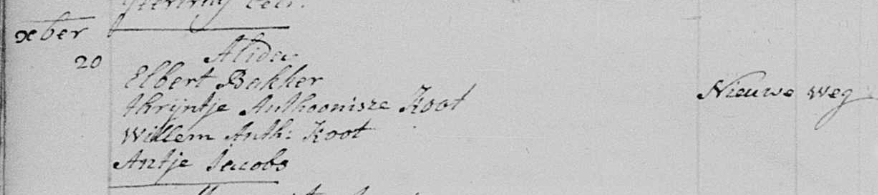 xber
20
Alida
Elbert Bakker
thrijntje Anthoonisze Koot
Willem Anth: Koot
Antje Jacobs
Nieuwe weg